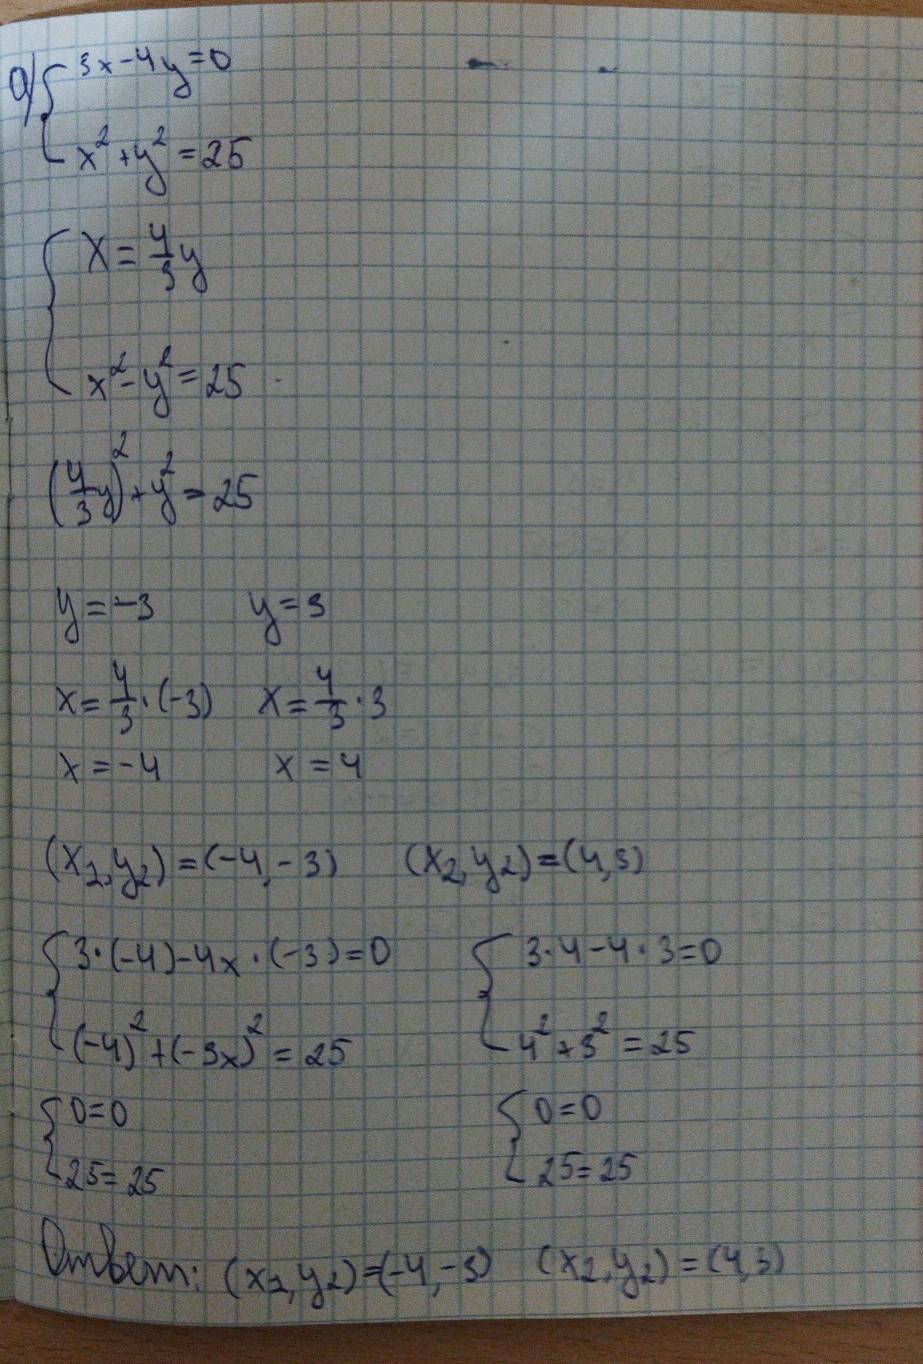 а) { 3x-4y=0
x²+y²=25
{ x=4/3 y
x²-y²=25
(4/3 y)²+y²=25
y=-3 y=3
x=4/3·(-3) x=4/3·3
x=-4 x=4
(x₂,y₂)=(-4,-3) (x₂,y₂)=(4,3)
{ 3·(-4)-4x·(-3)=0 { 3·4-4·3=0
(-4)²+(-3x)²=25 4²+3²=25
{ 0=0 { 0=0
25=25 25=25
Ответ: (x₂,y₂)=(-4,-3) (x₂,y₂)=(4,3)